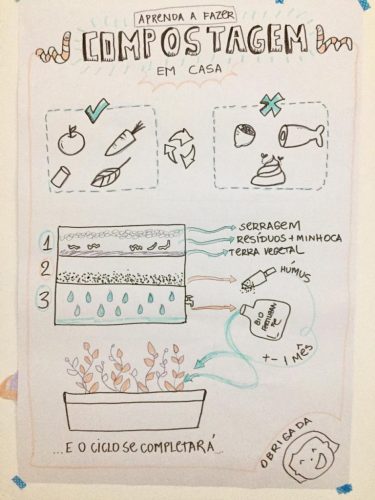 APRENDA A FAZER
COMPOSTAGEM
EM CASA
1
SERRAGEM
RESÍDUOS + MINHOCA
TERRA VEGETAL
2
HÚMUS
3
BIO
+- 1 MÊS
...E O CICLO SE COMPLETARÁ...
OBRIGADA